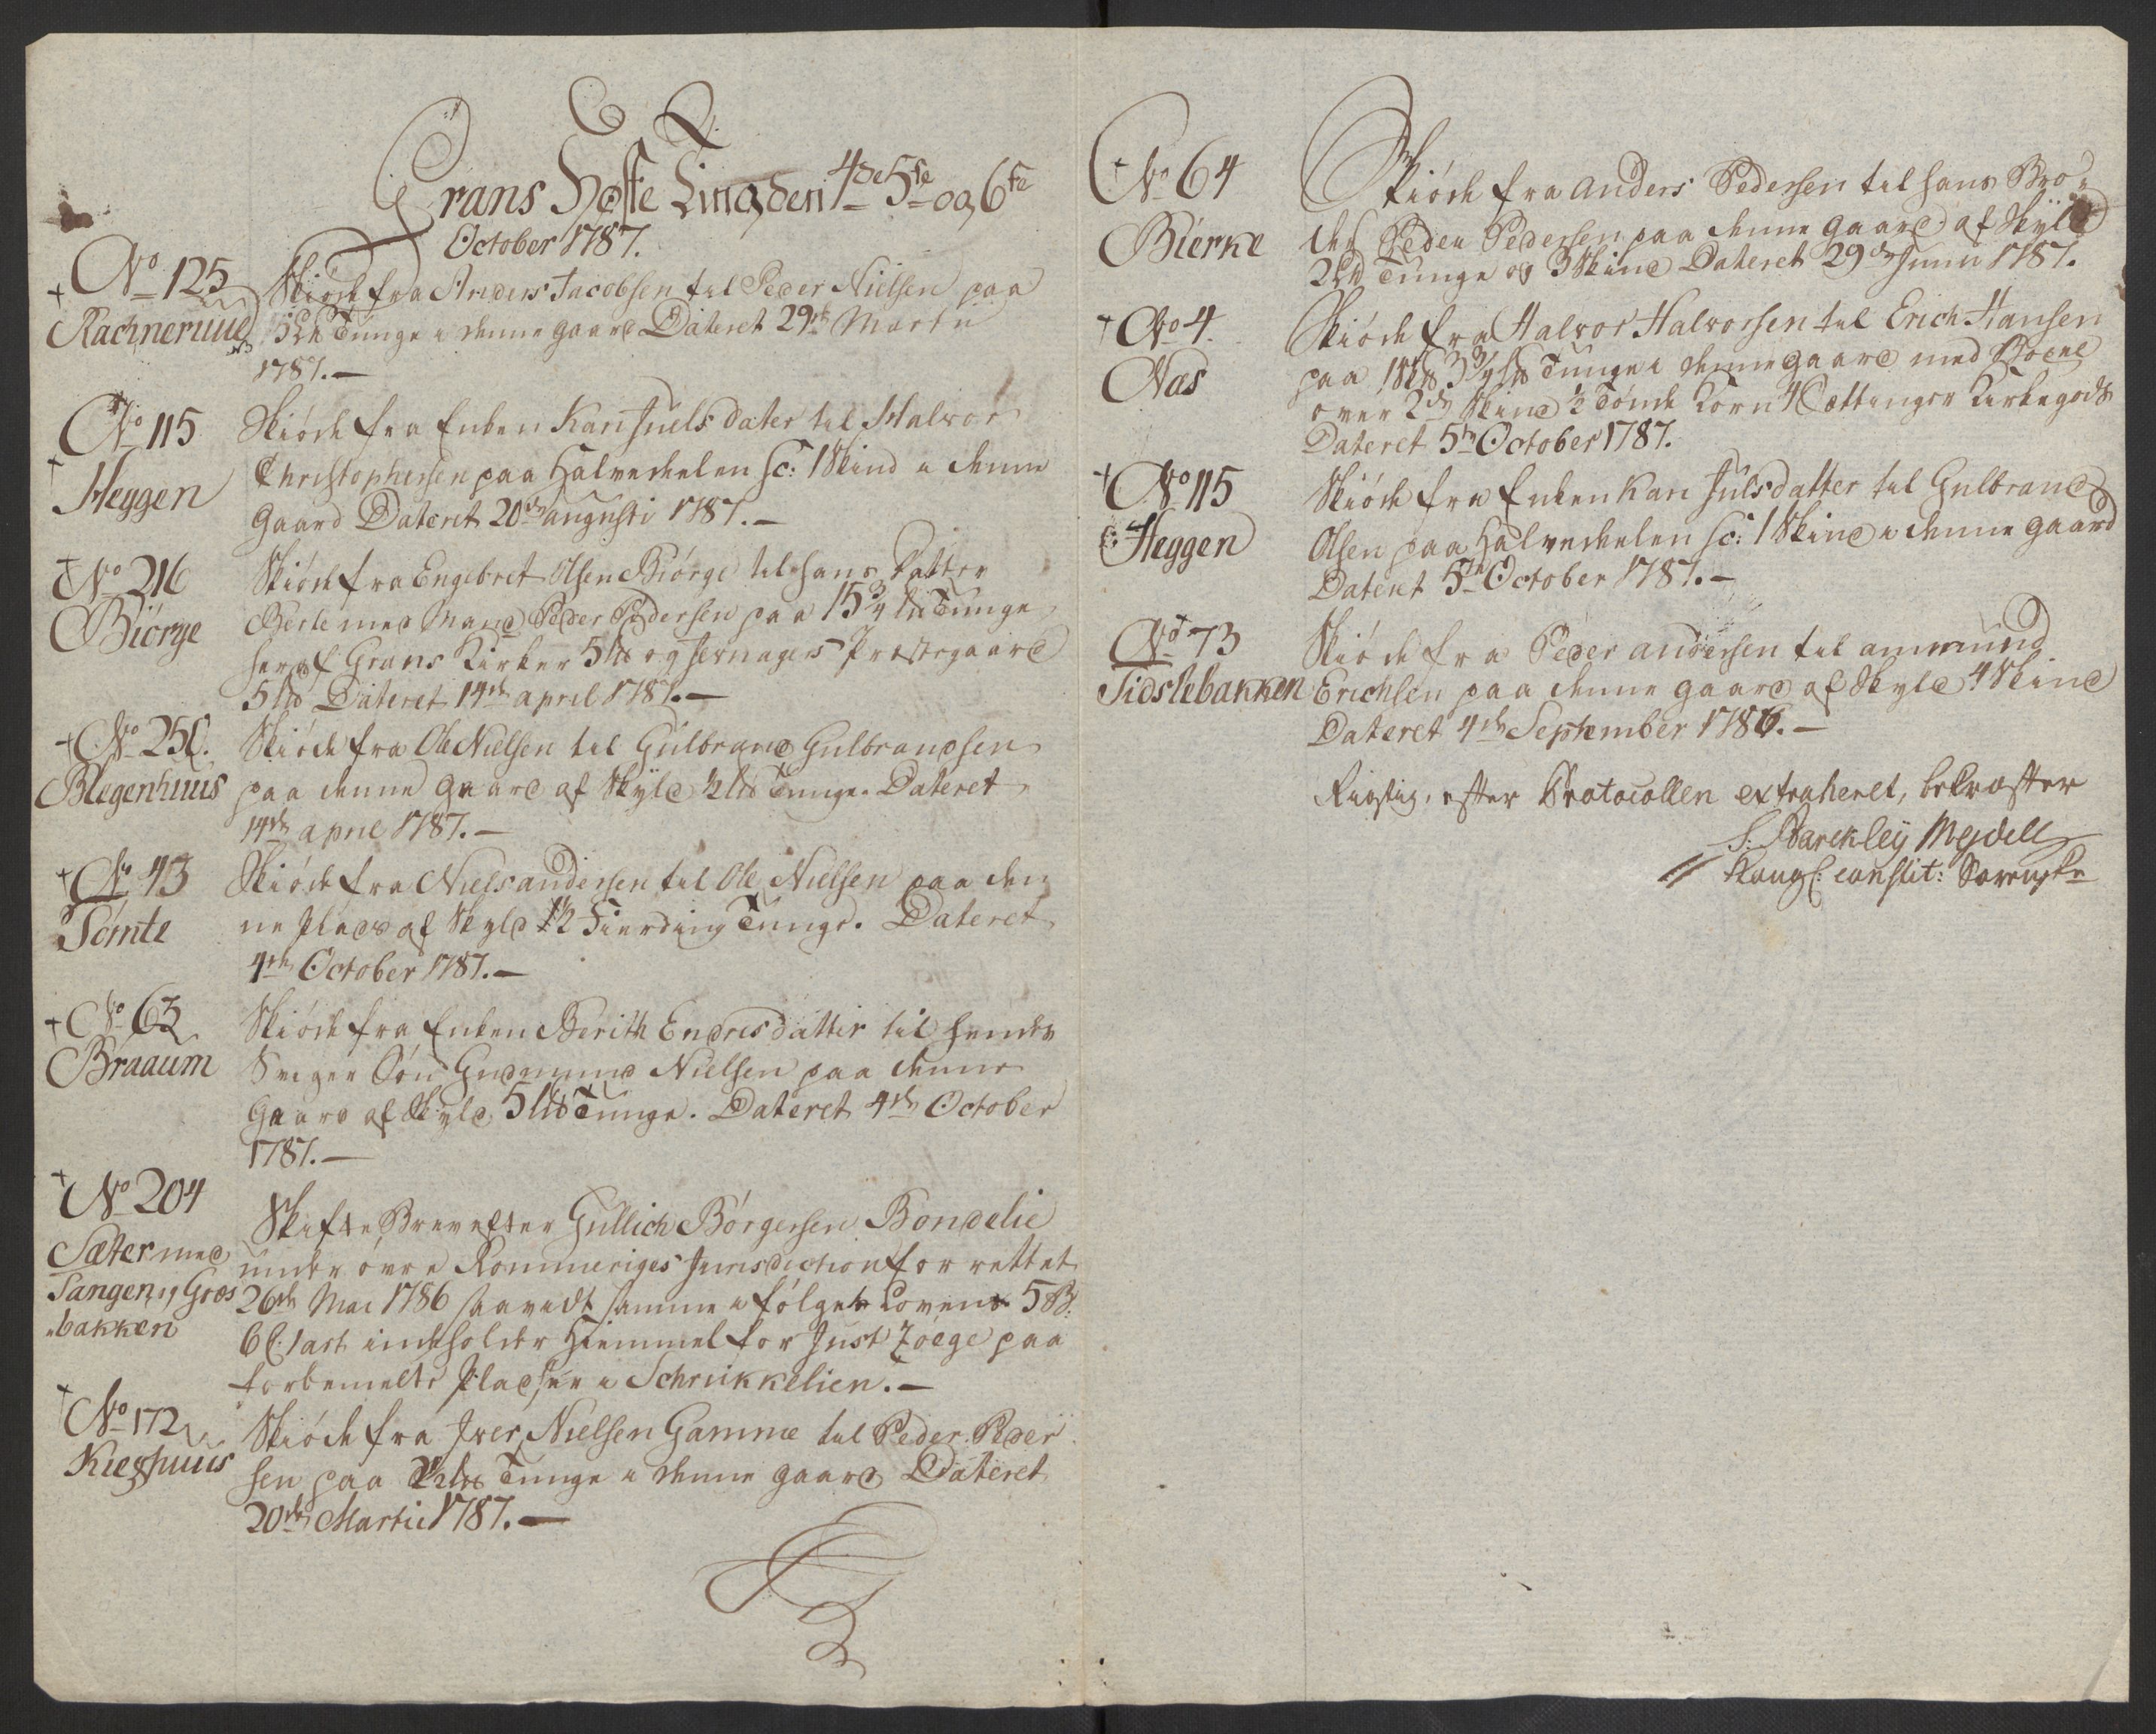 Grans Høste Ting den 4de 5te og 6te
October 1787.
No 125
Rachneruud
Skiøde fra Anders Jacobsen til Peder Nielsen paa
5 Lb Tunge i denne gaard Dateret 29de Martii
1787.—
No 115
Heggen
Skiøde fra Enken Kari Juels dater til Halvor
Christophersen paa Halvedeelen sc: 1 Skind i denne
Gaard Dateret 20de Augusti 1787.—
No 216
Biørge
Skiøde fra Engebret Olsen Biørge til hans Datter
Mand Peder Pedersen paa 15¾ Lb Tunge
heraf Grans Kirker 5 Lb og Jevnagers Præstegaard
5 Lb Dateret 14de April 1787.—
No 25
Blegenhuus
Skiøde fra Ole Nielsen til Gulbrand Gulbrandsen
paa denne gaard af Skyld ½ Lb Tunge. Dateret
14de April 1787.—
No 43
Tømte
Skiøde fra Niels Andersen til Ole Nielsen paa den
ne Plads af Skyld 1½ Fierding Tunge. Dateret
4de October 1787.—
No 63
Braaum
Skiøde fra Enken Berith Endresdatter til hendes
Sviger Søn Gudmund Nielsen paa denne
Gaard af Skyld 5 Lb Tunge. Dateret 4de October
1787.—
No 204
Sæter med
Tangen og Græs
bakken
Skifte Brev efter Gullich Børgersen Bondelie
under øvre Rommeriges Jurisdiction for rettet
26de Mai 1786 saavidt samme i følge Lovens 5 B:
6 C. 1 art indeholder Hiemmel for Just Zøege paa
forbemelte Pladser i Schrukkelien.—
No 172
Kieghuus
Skiøde fra Iver Nielsen Gamme til Peder Peder
sen paa 2½ Lb Tunge i denne gaard Dateret
20de Martii 1787.—
No 64
Bierke
Skiøde fra Anders Pedersen til hans Bro-
der Peder Pedersen paa denne gaard af Skyld
2 Lb Tunge og 3 Skind Dateret 29de Junii 1787.
No 4.
Næs
Skiøde fra Halvor Halvorsen til Erich Hansen
paa 1 3¾ Lb Tunge i denne gaard med Bøxel
over 2de Skind ½ Tønde Korn 4 Sættinger Kirkegods
Dateret 5te October 1787.
No 115
Heggen
Skiøde fra Enken Kari Julsdatter til Gulbrand
Olsen paa Halvedeelen sc: 1 Skind i denne gaard
Dateret 5te October 1787.—
No 73
Tidslebakken
Skiøde fra Peder Andersen til Ammund
Erichsen paa denne gaard af Skyld 4 Skind
Dateret 4de September 1786.—
Rigtig, efter Protocollen extraheret, bekræfter
S: Barckley Meydell
Kongl: constit: Sorensk